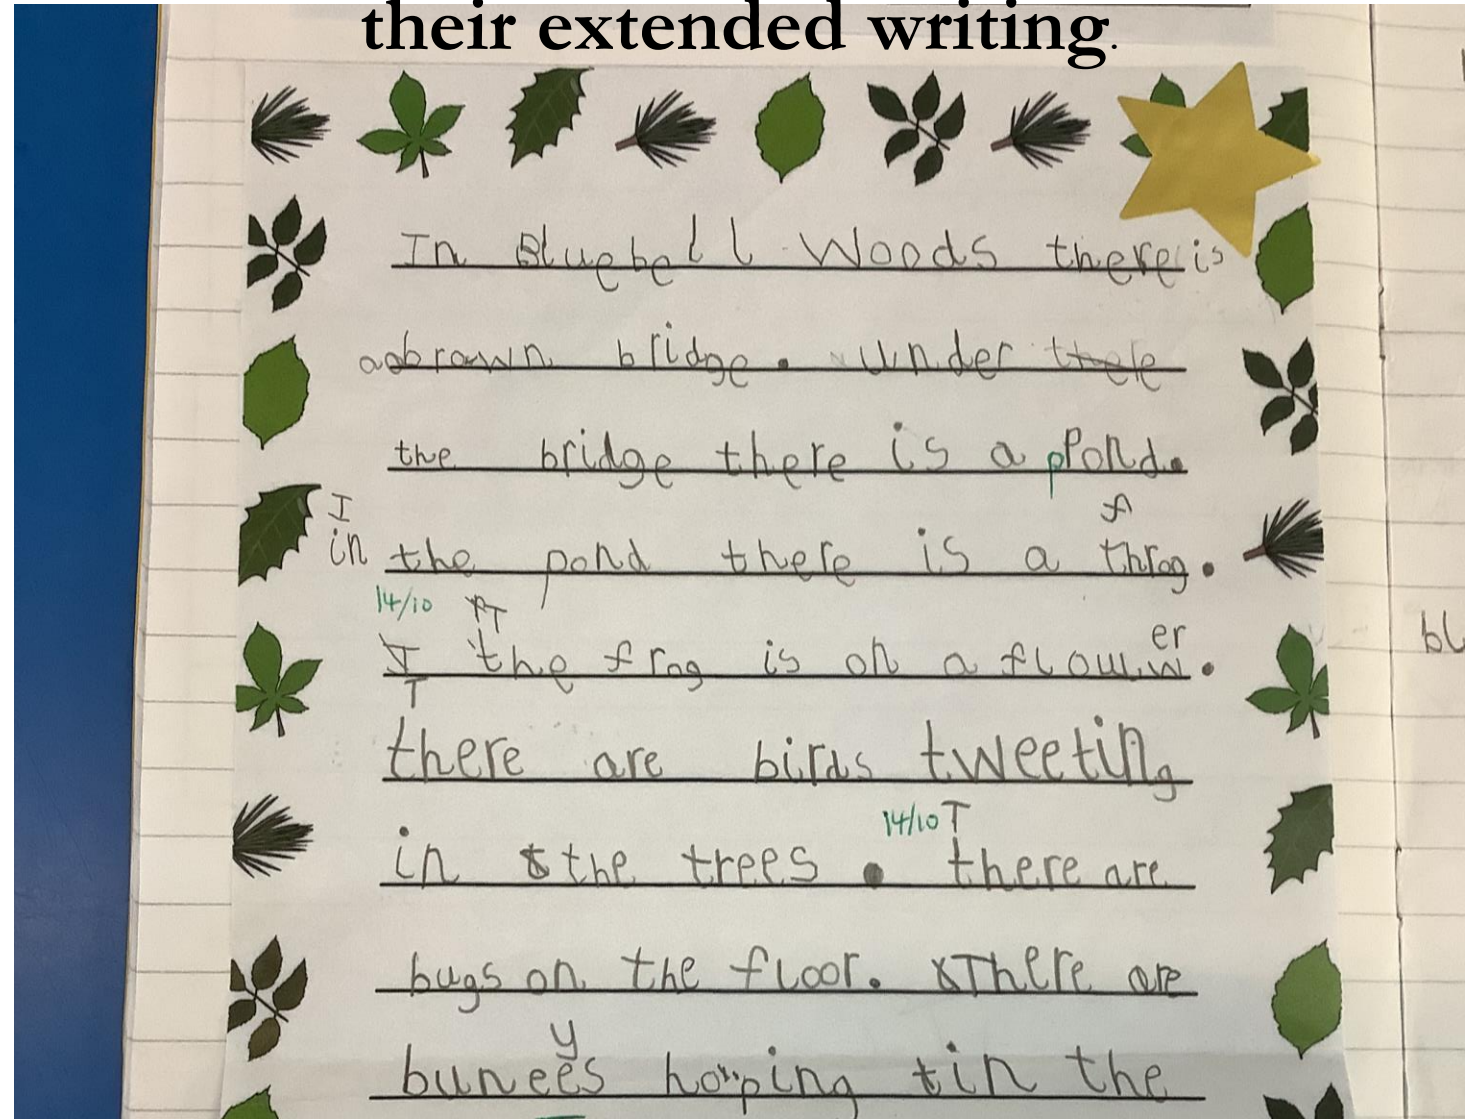 their extended writing.
In Bluebell Woods there is
a brown bridge. Under there
the bridge there is a pPond.
I
f
in the pond there is a throg.
14/10 T
er
I the frog is on a flouw.
T
there are birds tweeting
14/10 T
in the trees. there are
bugs on the floor. There are
y
bunees hoping in the
bl